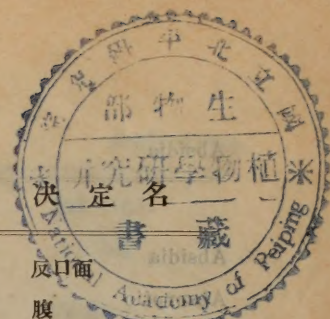 國立北平研究院
生物部
植物學研究所
藏書
National Academy of Peiping
决定名
反口面
腹